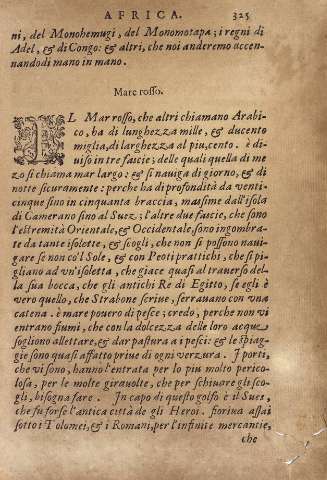 AFRICA. 325
ni, del Monohemugi, del Monomotapa; i regni di
Adel, & di Congo: & altri, che noi anderemo accen-
nando di mano in mano.
Mare rosso.
IL Mar rosso, che altri chiamano Arabi-
co, ha di lunghezza mille, & ducento
miglia, di larghezza al piu, cento. è di-
uiso in tre fascie; delle quali quella di me-
zo si chiama mar largo: & si nauiga di giorno, & di
notte sicuramente: perche ha di profondità da venti-
cinque sino in cinquanta braccia, massime dall'isola
di Camerano sino al Suez; l'altre due fascie, che sono
l'estremità Orientale, & Occidentale, sono ingombra-
te da tante isolette, & scogli, che non si possono naui-
gare se non co'l Sole, & con Peoti prattichi, che si pi-
gliano ad vn'isoletta, che giace quasi al trauerso del-
la sua bocca, che gli antichi Re di Egitto, se egli è
vero quello, che Strabone scriue, serrauano con vna
catena. è mare pouero di pesce; credo, perche non vi
entrano fiumi, che con la dolcezza delle loro acque
sogliono allettare, & dar pastura a i pesci: & le spiag-
gie sono quasi affatto priue di ogni verzura. I porti,
che vi sono, hanno l'entrata per lo piu molto perico-
losa, per le molte girauolte, che per schiuare gli sco-
gli, bisogna fare. In capo di questo golfo è il Sues,
che fu forse l'antica città de gli Heroi. fioriua assai
sotto i Tolomei, & i Romani, per l'infinite mercantie,
che